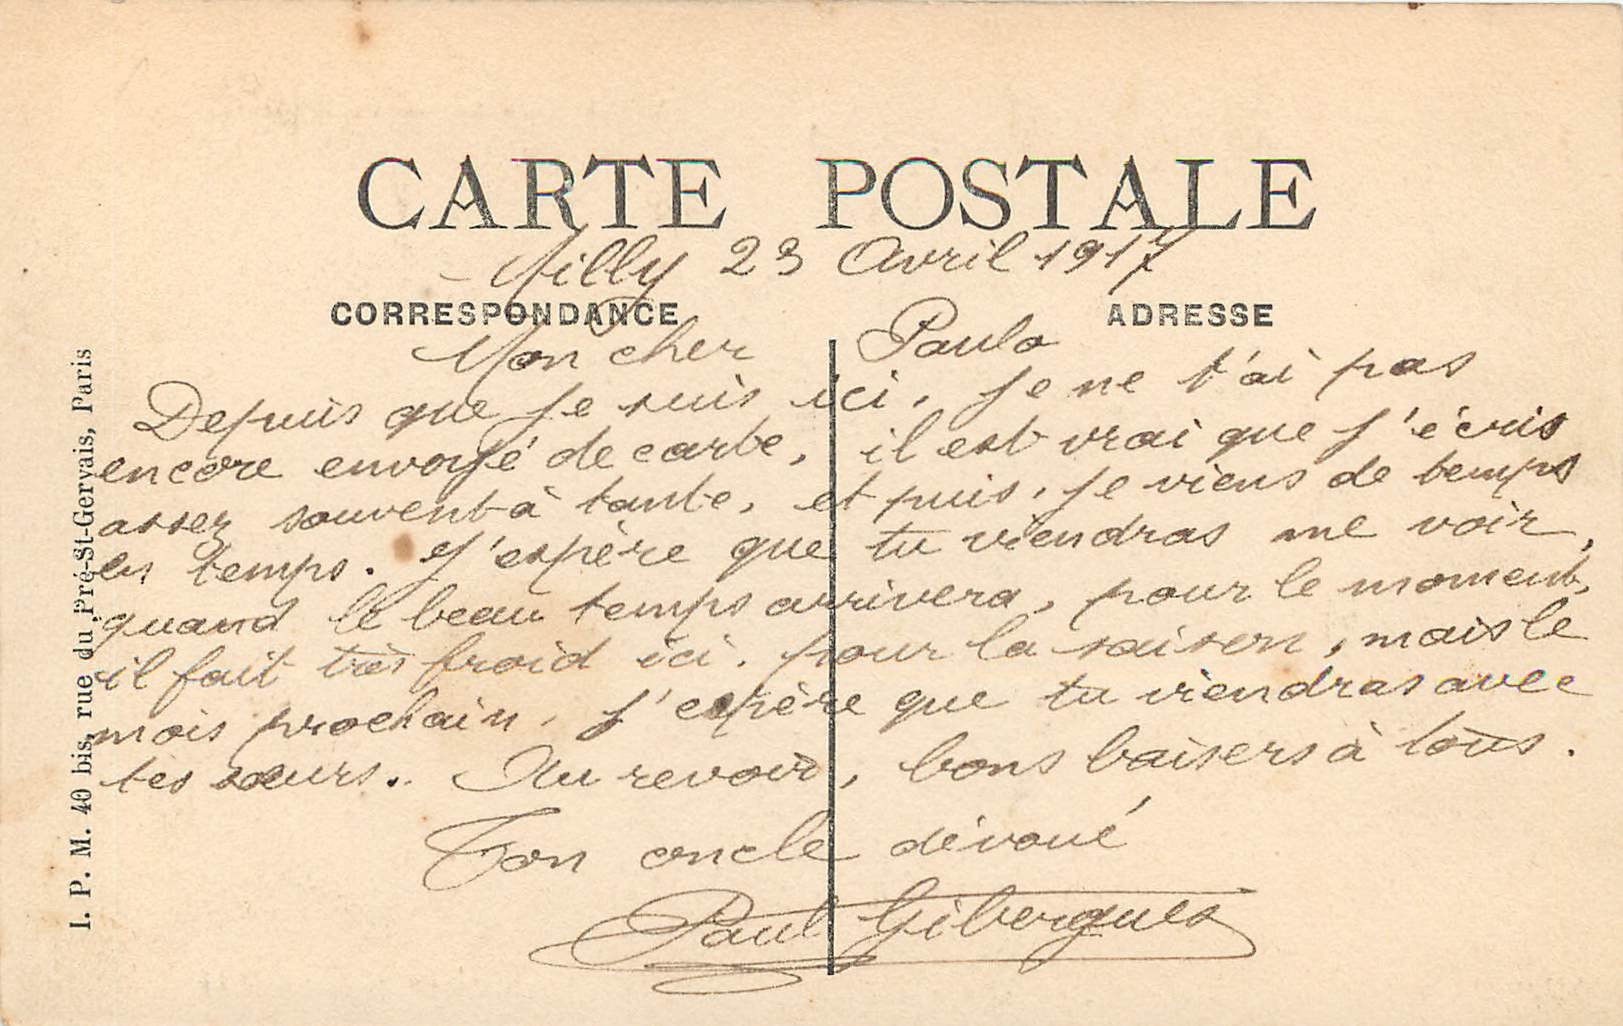 CARTE POSTALE
Milly 23 Avril 1917
CORRESPONDANCE ADRESSE
Mon cher Paulo
Depuis que je suis ici, je ne t'ai pas
encore envoyé de carte, il est vrai que j'écris
assez souvent à tante, et puis, je viens de temps
en temps. J'espère que tu viendras me voir,
quand le beau temps arrivera, pour le moment,
il fait très froid ici, pour la saison, mais le
mois prochain, j'espère que tu viendras avec
tes sœurs. Au revoir, bons baisers à tous.
Ton oncle dévoué
Paul Gibergues
I. P. M. 40 bis, rue du Pré-St-Gervais, Paris